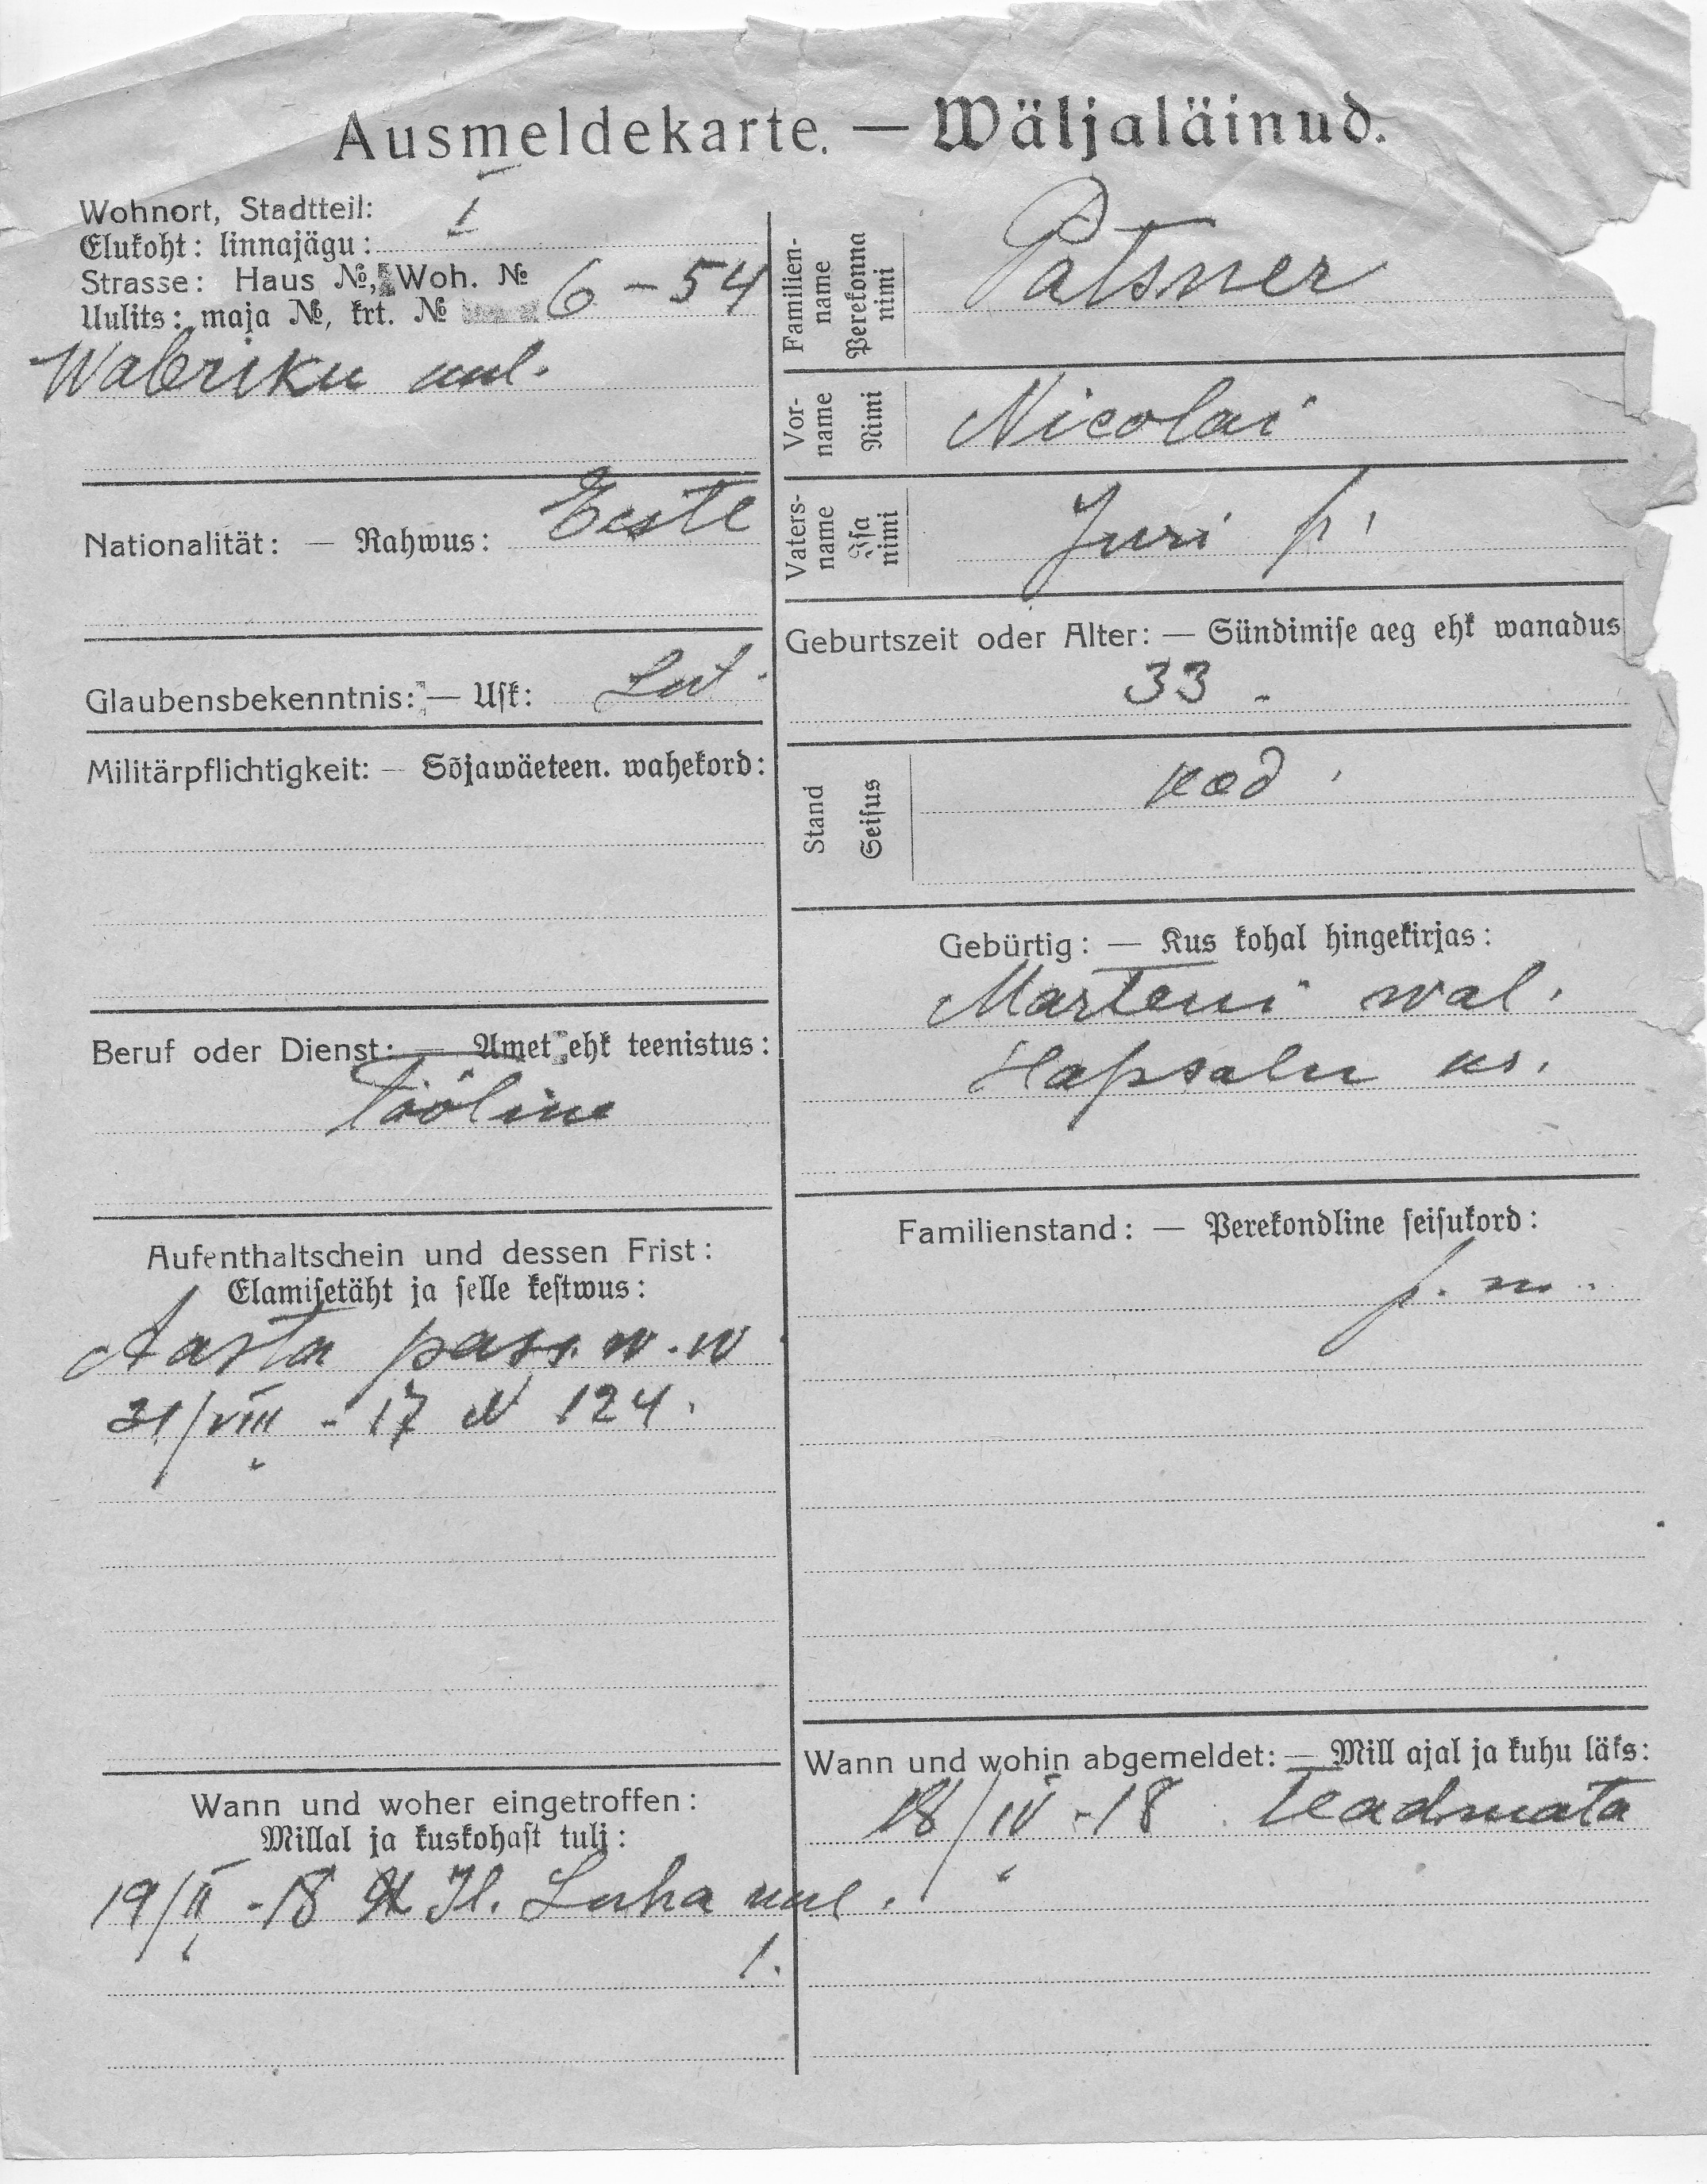 Ausmeldekarte. — Wäljaläinud.
Wohnort, Stadtteil: I
Elukoht: linnajägu:
Strasse: Haus №, Woh. №
Uulits: maja №, krt. № 6 - 54
Wabriku uul.
Nationalität: — Rahwus: Eestl
Glaubensbekenntnis: — Usk: Lut.
Militärpflichtigkeit: — Sõjawäeteen. wahekord:
Beruf oder Dienst: — Amet ehk teenistus:
Tööline
Aufenthaltschein und dessen Frist:
Elamisetäht ja selle kestwus:
Aasta pass. w. w
31/VIII - 17 N 124.
Wann und woher eingetroffen:
Millal ja kuskohast tuli:
19/II -18 Jl. Luha uul.
1.
Familien-
name
Perekonna
nimi
Patsner
Vor-
name
Nimi
Nicolai
Vaters-
name
Isa
nimi
Juri p.
Geburtszeit oder Alter: — Sündimise aeg ehk wanadus
33 -
Stand
Seisus
Gebürtig: — Kus kohal hingekirjas:
Marteni wal.
Hapsalu kr.
Familienstand: — Perekondline seisukord:
p. m.
Wann und wohin abgemeldet: — Mill ajal ja kuhu läks:
18/IV -18 teadmata